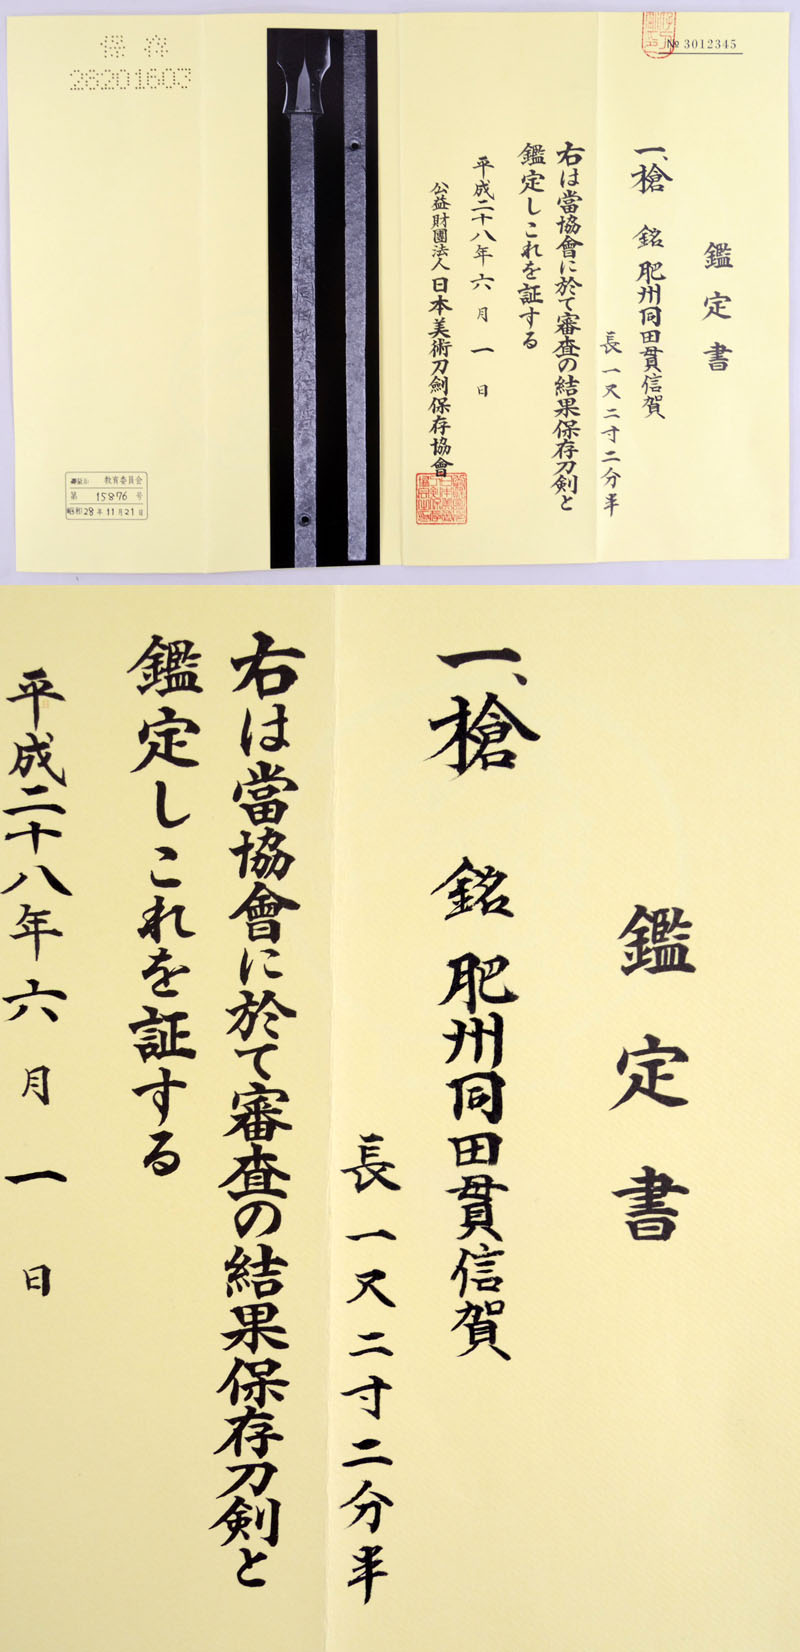 № 3012345
鑑定書
一、槍 銘 肥州同田貫信賀
長一尺二寸二分半
右は當協會に於て審査の結果保存刀剣と
鑑定しこれを証する
平成二十八年六月一日
公益財團法人日本美術刀劍保存協會
保存
28201603
教育委員会
第 15876 号
昭和28年11月21日
鑑定書
一、槍 銘 肥州同田貫信賀
長一尺二寸二分半
右は當協會に於て審査の結果保存刀剣と
鑑定しこれを証する
平成二十八年六月一日